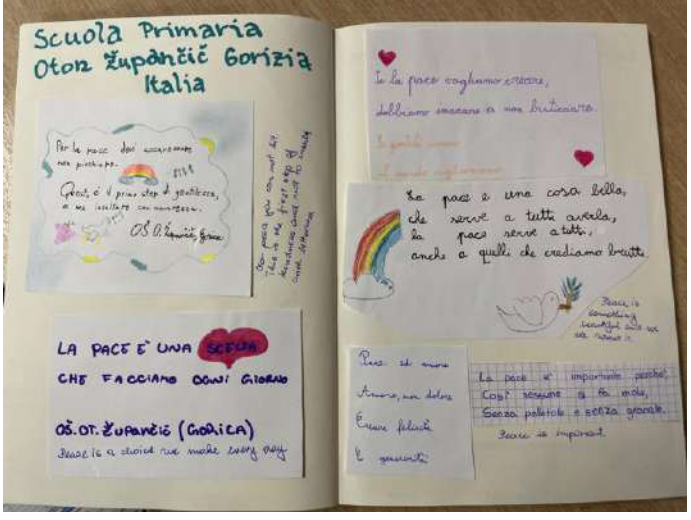 Scuola Primaria
Oton Župančič Gorizia
Italia
Per la pace devi accarezzare
non picchiare.
Questo è il primo step di gentilezza,
e non insultare con amarezza.
OŠ O. Župančič, Gorica
This is the first step of
kindness and not to insult
LA PACE E' UNA SCELTA
CHE FACCIAMO OGNI GIORNO
OŠ. OT. ŽUPANČIČ (GORICA)
Peace is a choice we make every day
Se la pace vogliamo creare,
dobbiamo imparare a non bisticciare.
La pace è una cosa bella,
che serve a tutti averla,
la pace serve a tutti,
anche a quelli che crediamo brutti.
Peace is
something
beautiful and we
all
Pace ed amore
Amore, non dolore
Creare felicità
E generosità
La pace e' importante perché,
Così nessuno si fa male,
Senza pistole e senza granate.
Peace is important